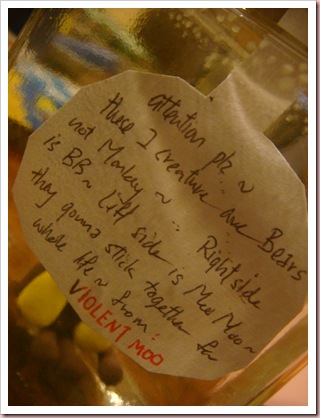 attention plz ~
these 2 creature are Bears
not Monkey ~ ... Right side
is BB ~ Left side is Moo Moo ~
they gonna stick together for
whole life ~ from :
VIOLENT MOO